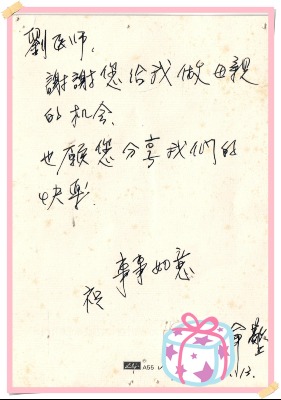 劉医師.
謝謝您给我做母親
的机会.
也願您分享我們的
快樂.
祝 事事如意
敬上
A55